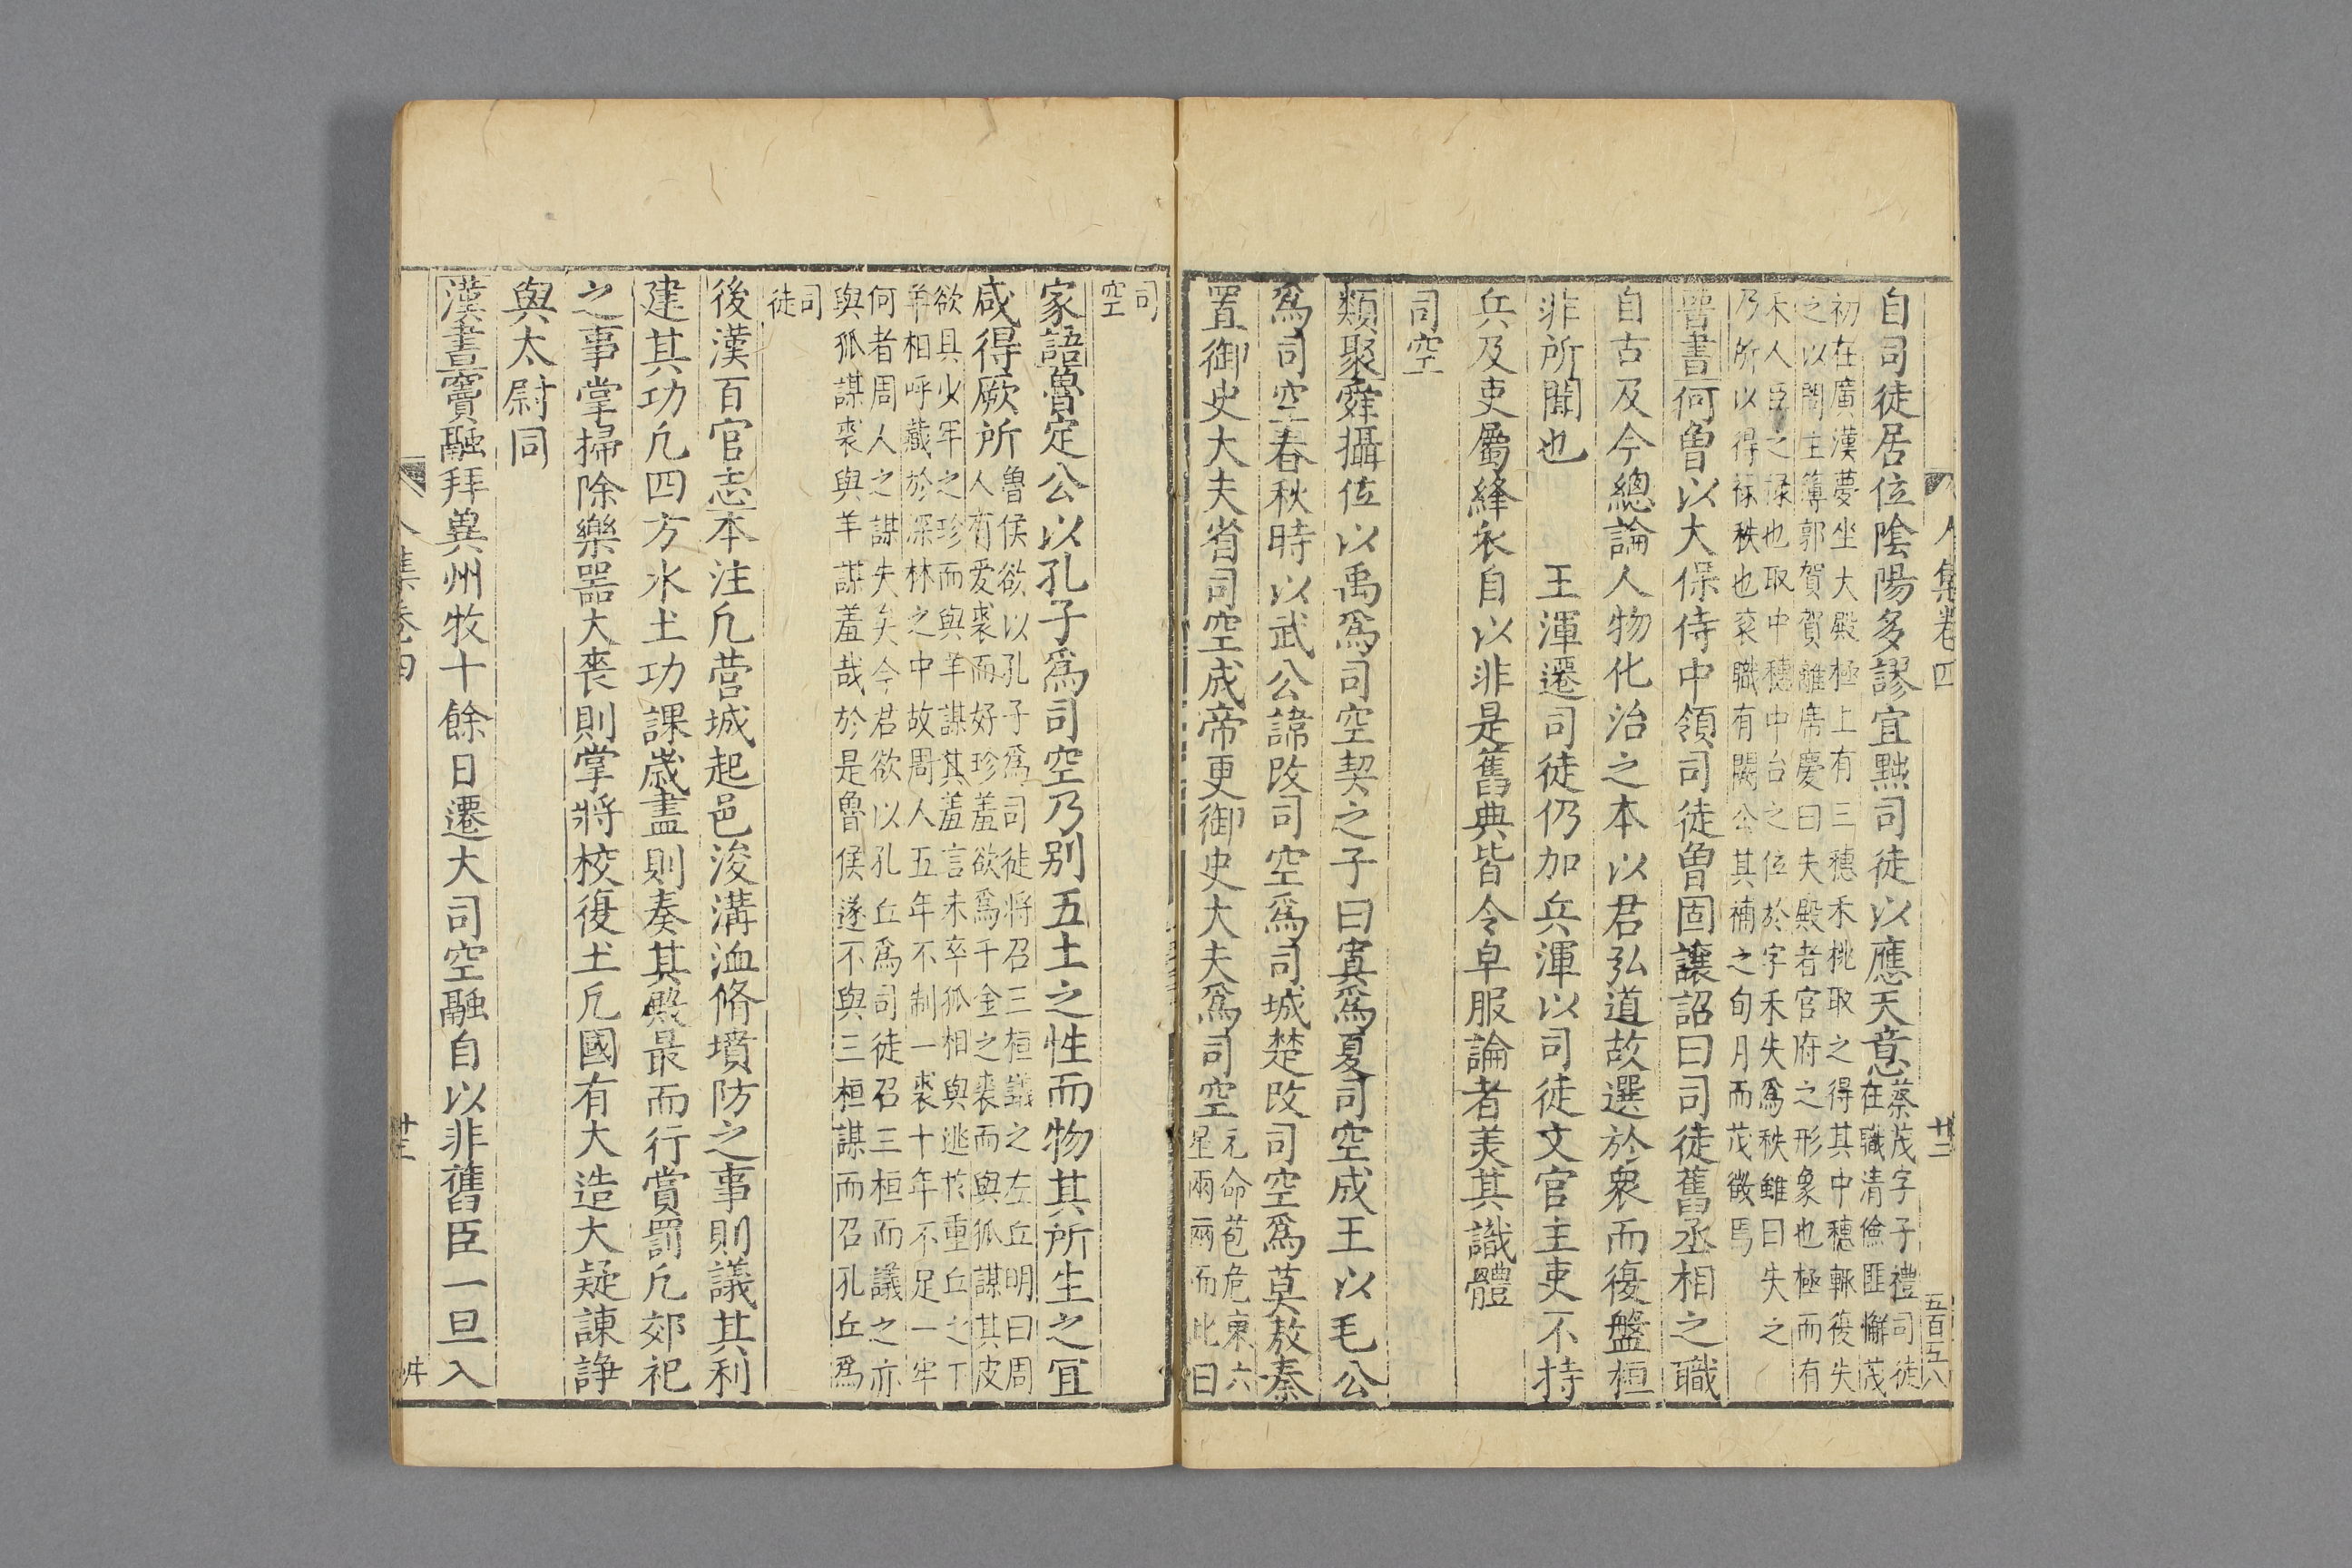 人集卷四
廿二
五百五八
自司徒居位陰陽多謬宜黜司徒以應天意蔡茂字子禮司徒
在職清儉匪懈茂
初在廣漢夢坐大殿極上有三穗禾桃取之得其中穗輒復失
之以問主簿郭賀賀離席慶曰夫殿者官府之形象也極而有
禾人臣之祿也取中穗中台之位於字禾失爲秩雖曰失之
乃所以得祿秩也衮職有闕公其補之旬月而茂徵焉
晉書何曾以大保侍中領司徒曾固讓詔曰司徒舊丞相之職
自古及今總論人物化治之本以君弘道故選於衆而復盤桓
非所聞也 王渾遷司徒仍加兵渾以司徒文官主吏不持
兵及吏屬絳衣自以非是舊典皆令皁服論者美其識體
司空
類聚舜攝位以禹爲司空契之子曰冥爲夏司空成王以毛公
爲司空春秋時以武公諱改司空爲司城楚改司空爲莫敖秦
置御史大夫省司空成帝更御史大夫爲司空元命苞危東六
星兩兩而比曰
司
空
家語魯定公以孔子爲司空乃别五土之性而物其所生之宜
咸得厥所魯侯欲以孔子爲司徒將召三桓議之左丘明曰周
人有爱裘而好珍羞欲爲千金之裘而與狐謀其皮
欲具少牢之珍而與羊謀其羞言未卒狐相與逃於重丘之下
羊相呼藏於深林之中故周人五年不制一裘十年不足一牢
何者周人之謀失矣今君欲以孔丘爲司徒召三桓而議之亦
與狐謀裘與羊謀羞哉於是魯侯遂不與三桓謀而召孔丘爲
司
徒
後漢百官志本注凡营城起邑浚溝洫脩墳防之事則議其利
建其功凡四方水土功課歲盡則奏其殿最而行賞罰凡郊祀
之事掌掃除樂器大喪則掌將校復土凡國有大造大疑諫諍
與太尉同
漢書竇融拜冀州牧十餘日遷大司空融自以非舊臣一旦入
人集卷四